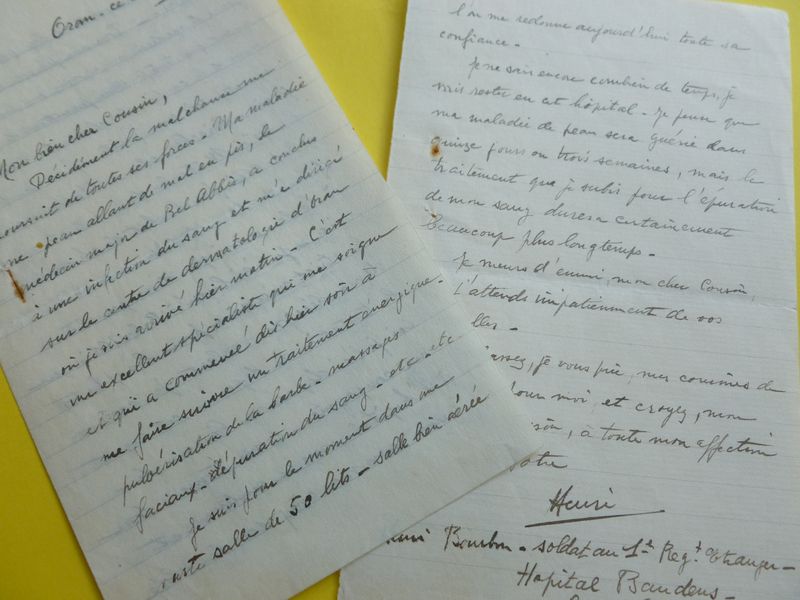 Oran - ce
Mon bien cher Cousin,
Décidément la malchance me
poursuit de toutes ses forces - Ma maladie
de peau allant de mal en pis, le
médecin major de Bel Abbès, a conclus
à une infection du sang et m'a dirigé
sur le centre de dermatologie d'Oran
où je suis arrivé hier matin - C'est
un excellent spécialiste qui me soigne
et qui a commencé dès hier soir à
me faire suivre un traitement énergique -
pulvérisation de la barbe - massages
faciaux - dépuration du sang - etc - etc
Je suis pour le moment dans une
vaste salle de 50 lits - salle bien aérée
l'on me redonne aujourd'hui toute sa
confiance -
Je ne sais encore combien de temps, je
vais rester en cet hôpital - Je pense que
ma maladie de peau sera guérie dans
quinze jours ou trois semaines, mais le
traitement que je subis pour l'épuration
de mon sang durera certainement
beaucoup plus longtemps -
Je meurs d'ennui, mon cher Cousin,
J'attends impatiemment de vos
elles -
assez, je vous prie, mes cousines de
pour moi, et croyez, mon
, à toute mon affection
otre
Henri
Henri Bourbon - soldat au 1er Regt Etranger -
Hopital Baudens -